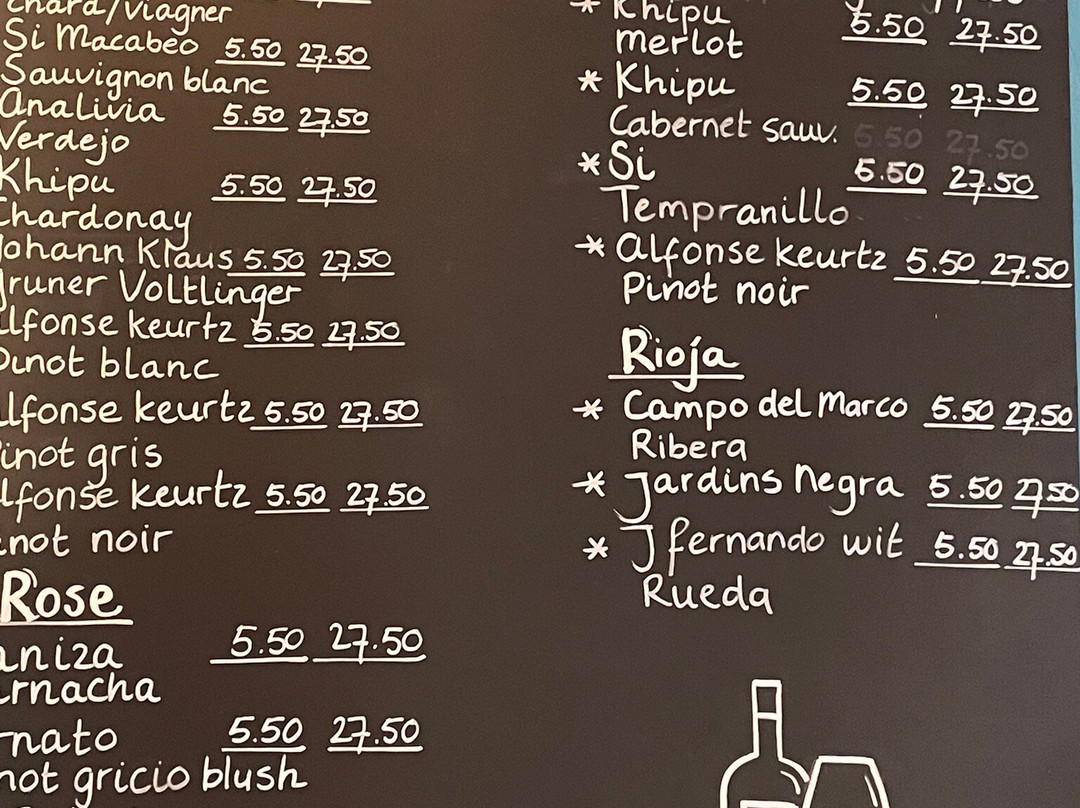 Chard/viagner
Si Macabeo 5.50 27.50
Sauvignon blanc
Analivia 5.50 27.50
Verdejo
Khipu 5.50 27.50
Chardonay
Johann Klaus 5.50 27.50
gruner Voltlinger
alfonse keurtz 5.50 27.50
Pinot blanc
alfonse keurtz 5.50 27.50
Pinot gris
alfonse keurtz 5.50 27.50
Pinot noir
Rose
aniza 5.50 27.50
arnacha
rnato 5.50 27.50
not gricio blush
* Khipu 5.50 27.50
merlot
* Khipu 5.50 27.50
Cabernet sauv. 5.50 27.50
* Si 5.50 27.50
Tempranillo
* alfonse keurtz 5.50 27.50
Pinot noir
Rioja
* Campo del Marco 5.50 27.50
Ribera
* Jardins Negra 5.50 27.50
* J fernando wit 5.50 27.50
Rueda